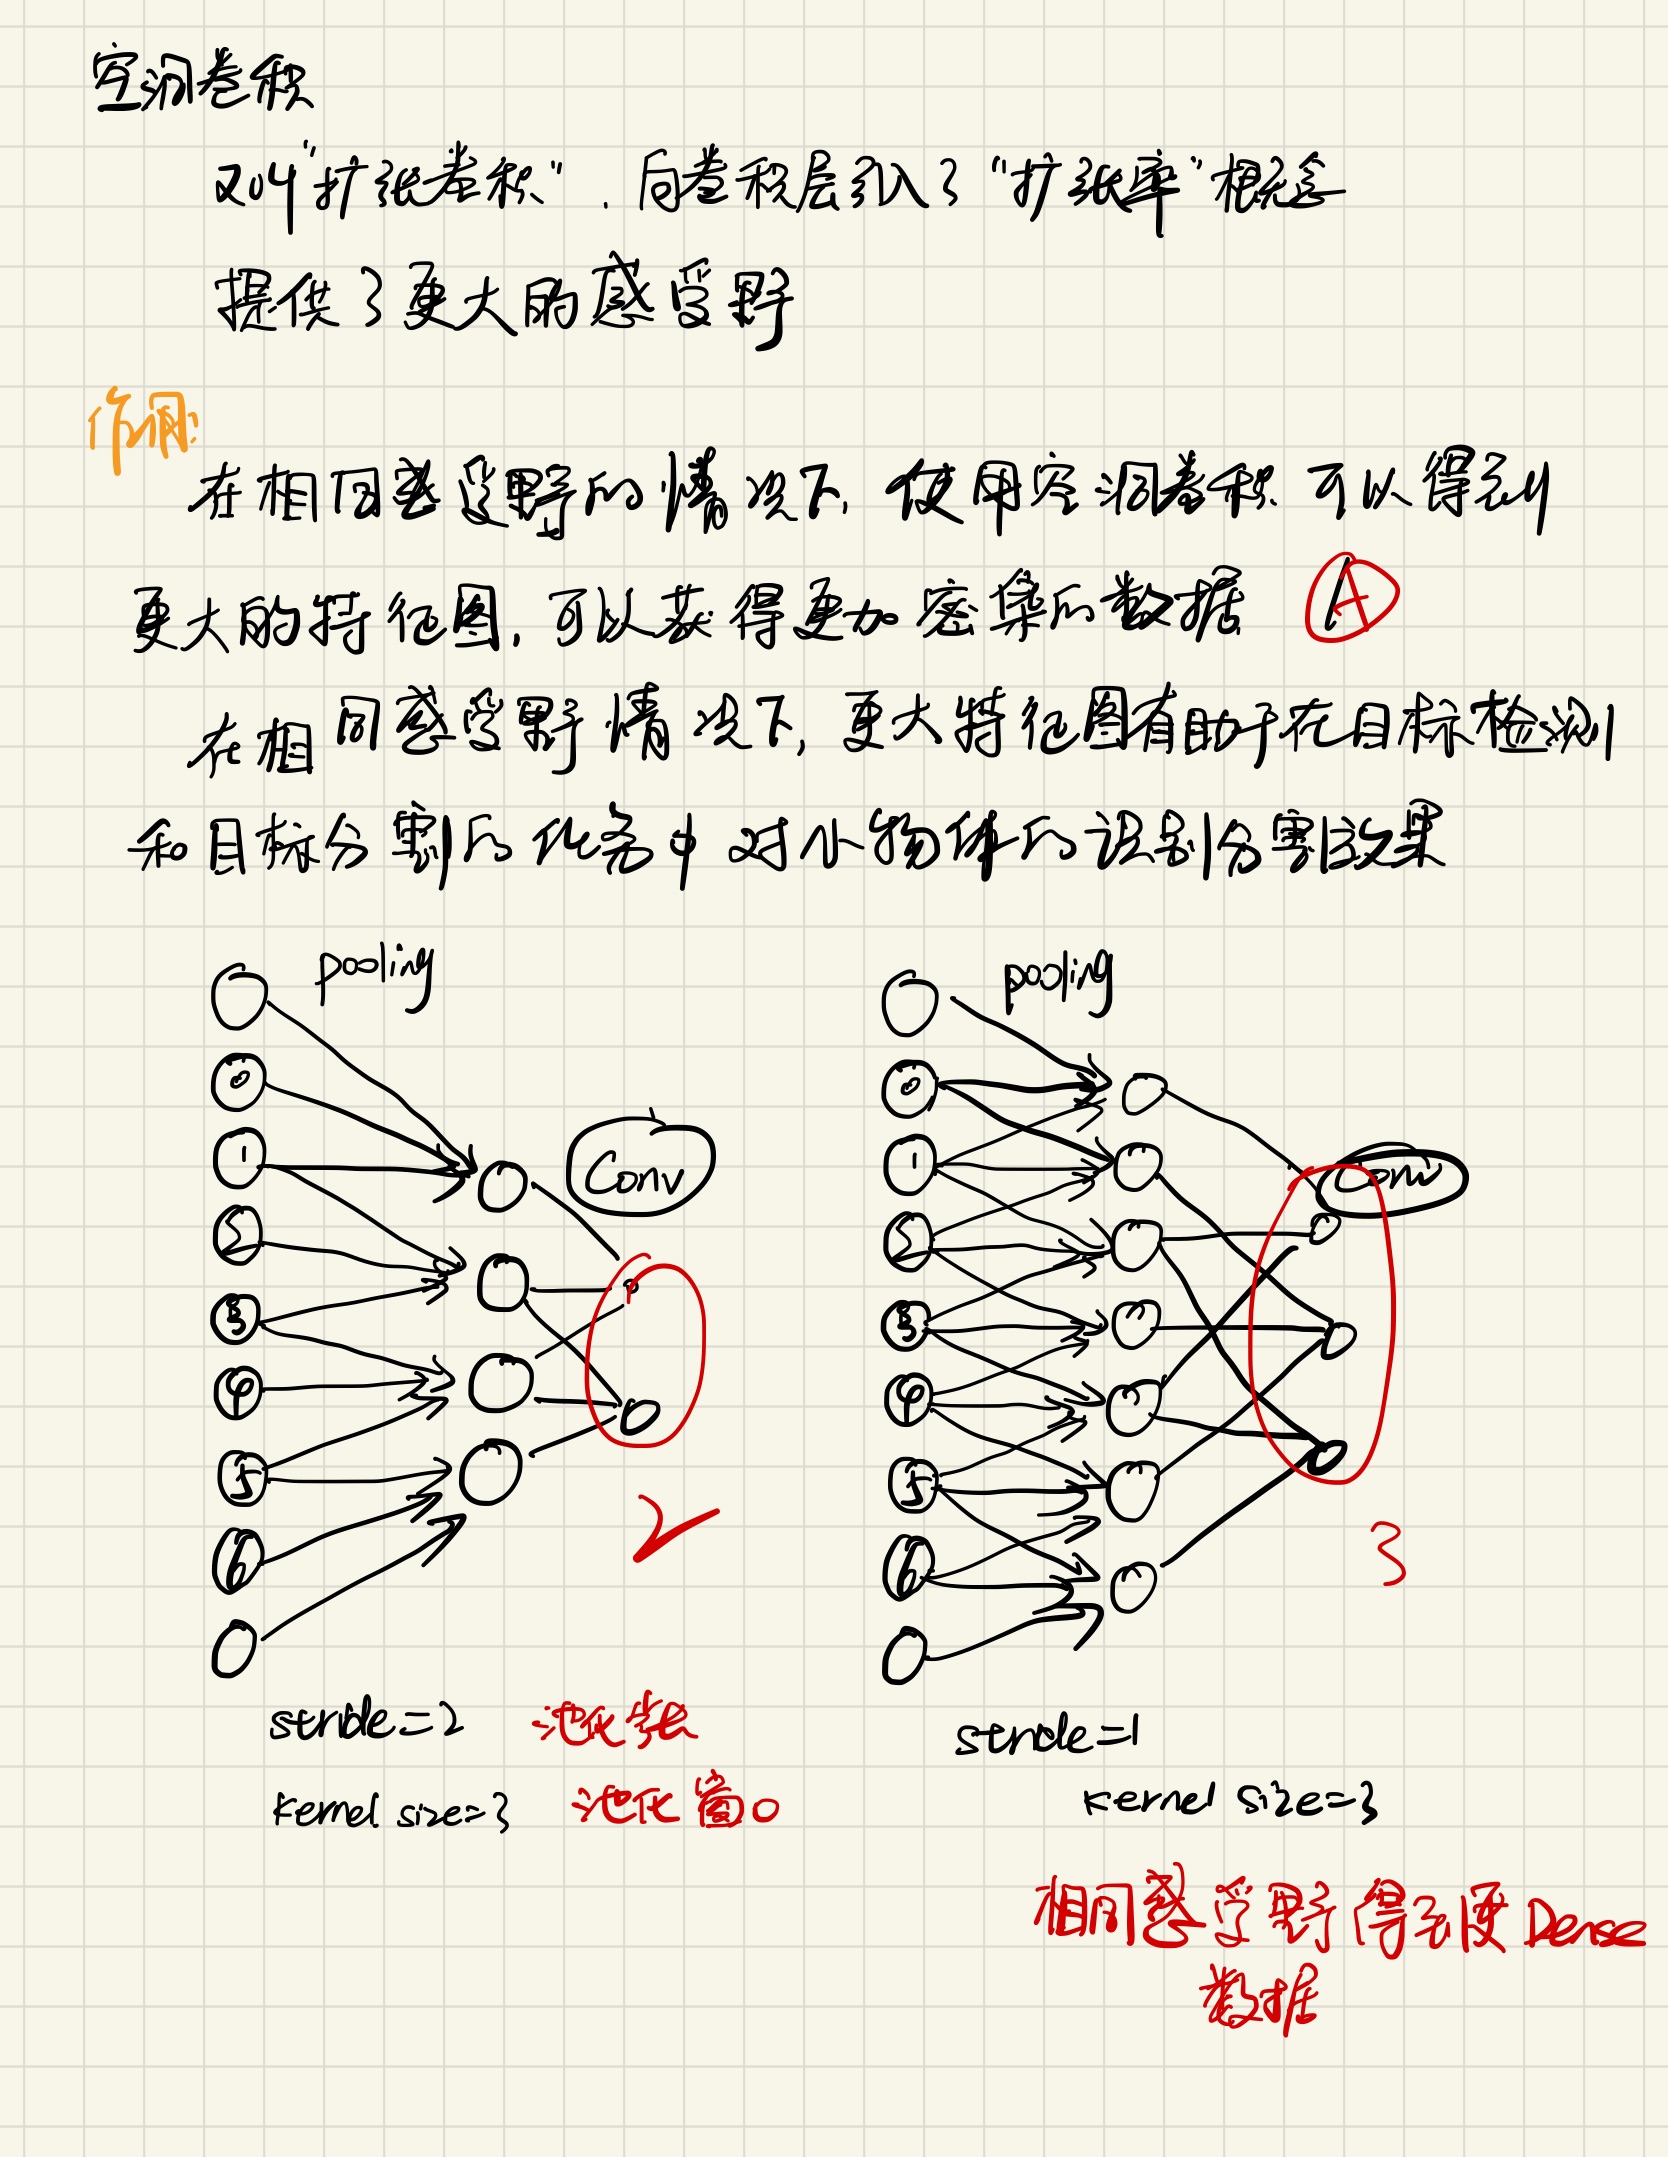 空洞卷积
又叫"扩张卷积". 向卷积层引入了"扩张率"概念
提供了更大的感受野
作用:
在相同感受野的情况下, 使用空洞卷积 可以得到
更大的特征图, 可以获得更加密集的数据 A
在相同感受野情况下, 更大特征图有助于在目标检测
和目标分割的任务中对小物体的识别分割效果
pooling
0
1
2
3
4
5
6
Conv
2
stride=2 池化步长
kernel size=3 池化窗口
pooling
0
1
2
3
4
5
6
Conv
3
stride=1
kernel size=3
相同感受野得到更Dense
数据